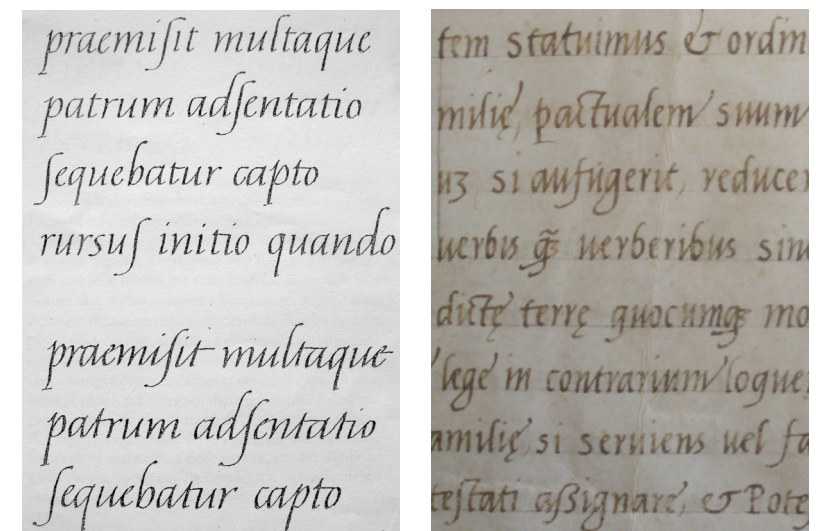 praemiſit multaque
patrum adſentatio
ſequebatur capto
rursuſ initio quando
praemiſit multaque
patrum adſentatio
ſequebatur capto
tem statuimus & ordin
milię, pactualem suum
uꝫ si aufugerit, reducer
uerbis uerberibus sin
dictę terrę quocumqꝫ mo
lege in contrarium loque
amilię si seruiens uel fa
teſtati aſsignare, & Pote